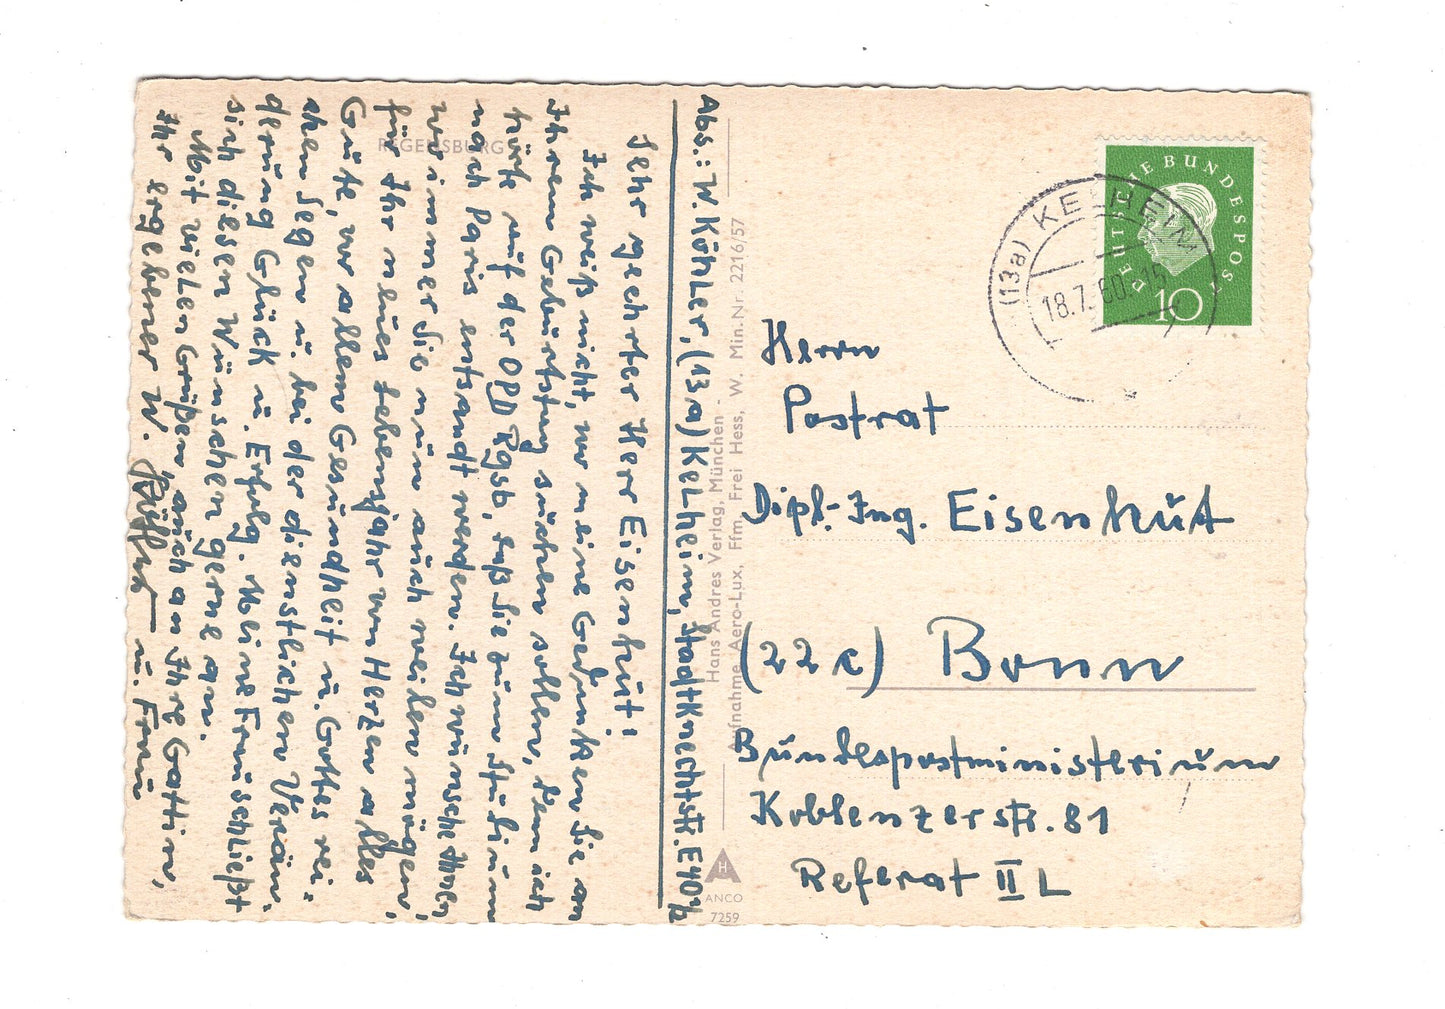 REGENSBURG
Abs.: W. Köhler, (13a) Kelheim, Stadtknechtstr. E40½
Sehr geehrter Herr Eisenhut!
Ich weiß nicht, wo meine Gedanken Sie an
Ihrem Geburtstag suchen sollen, denn ich
hörte auf der OPD Rgsb, daß Sie zum Studium
nach Paris entsandt werden. Ich wünsche Ihnen,
wo immer Sie nun auch weilen mögen,
für Ihr neues Lebensjahr von Herzen alles
Gute, vor allem Gesundheit u. Gottes rei-
chen Segen u. bei der dienstlichen Verän-
derung Glück u. Erfolg. Meine Frau schließt
sich diesen Wünschen gerne an.
Mit vielen Grüßen auch an Ihre Gattin,
Ihr ergebener W. Köhler u. Frau
Hans Andres Verlag, München -
Aufnahme Aero-Lux, Ffm, Frei Hess, W. Min. Nr. 2216/57
H
ANCO
7259
DEUTSCHE BUNDESPOST
10
(13a) KELHEIM
18.7.60.-15
Herrn
Postrat
Dipl.-Ing. Eisenhut
(22c) Bonn
Bundespostministerium
Koblenzerstr. 81
Referat II L